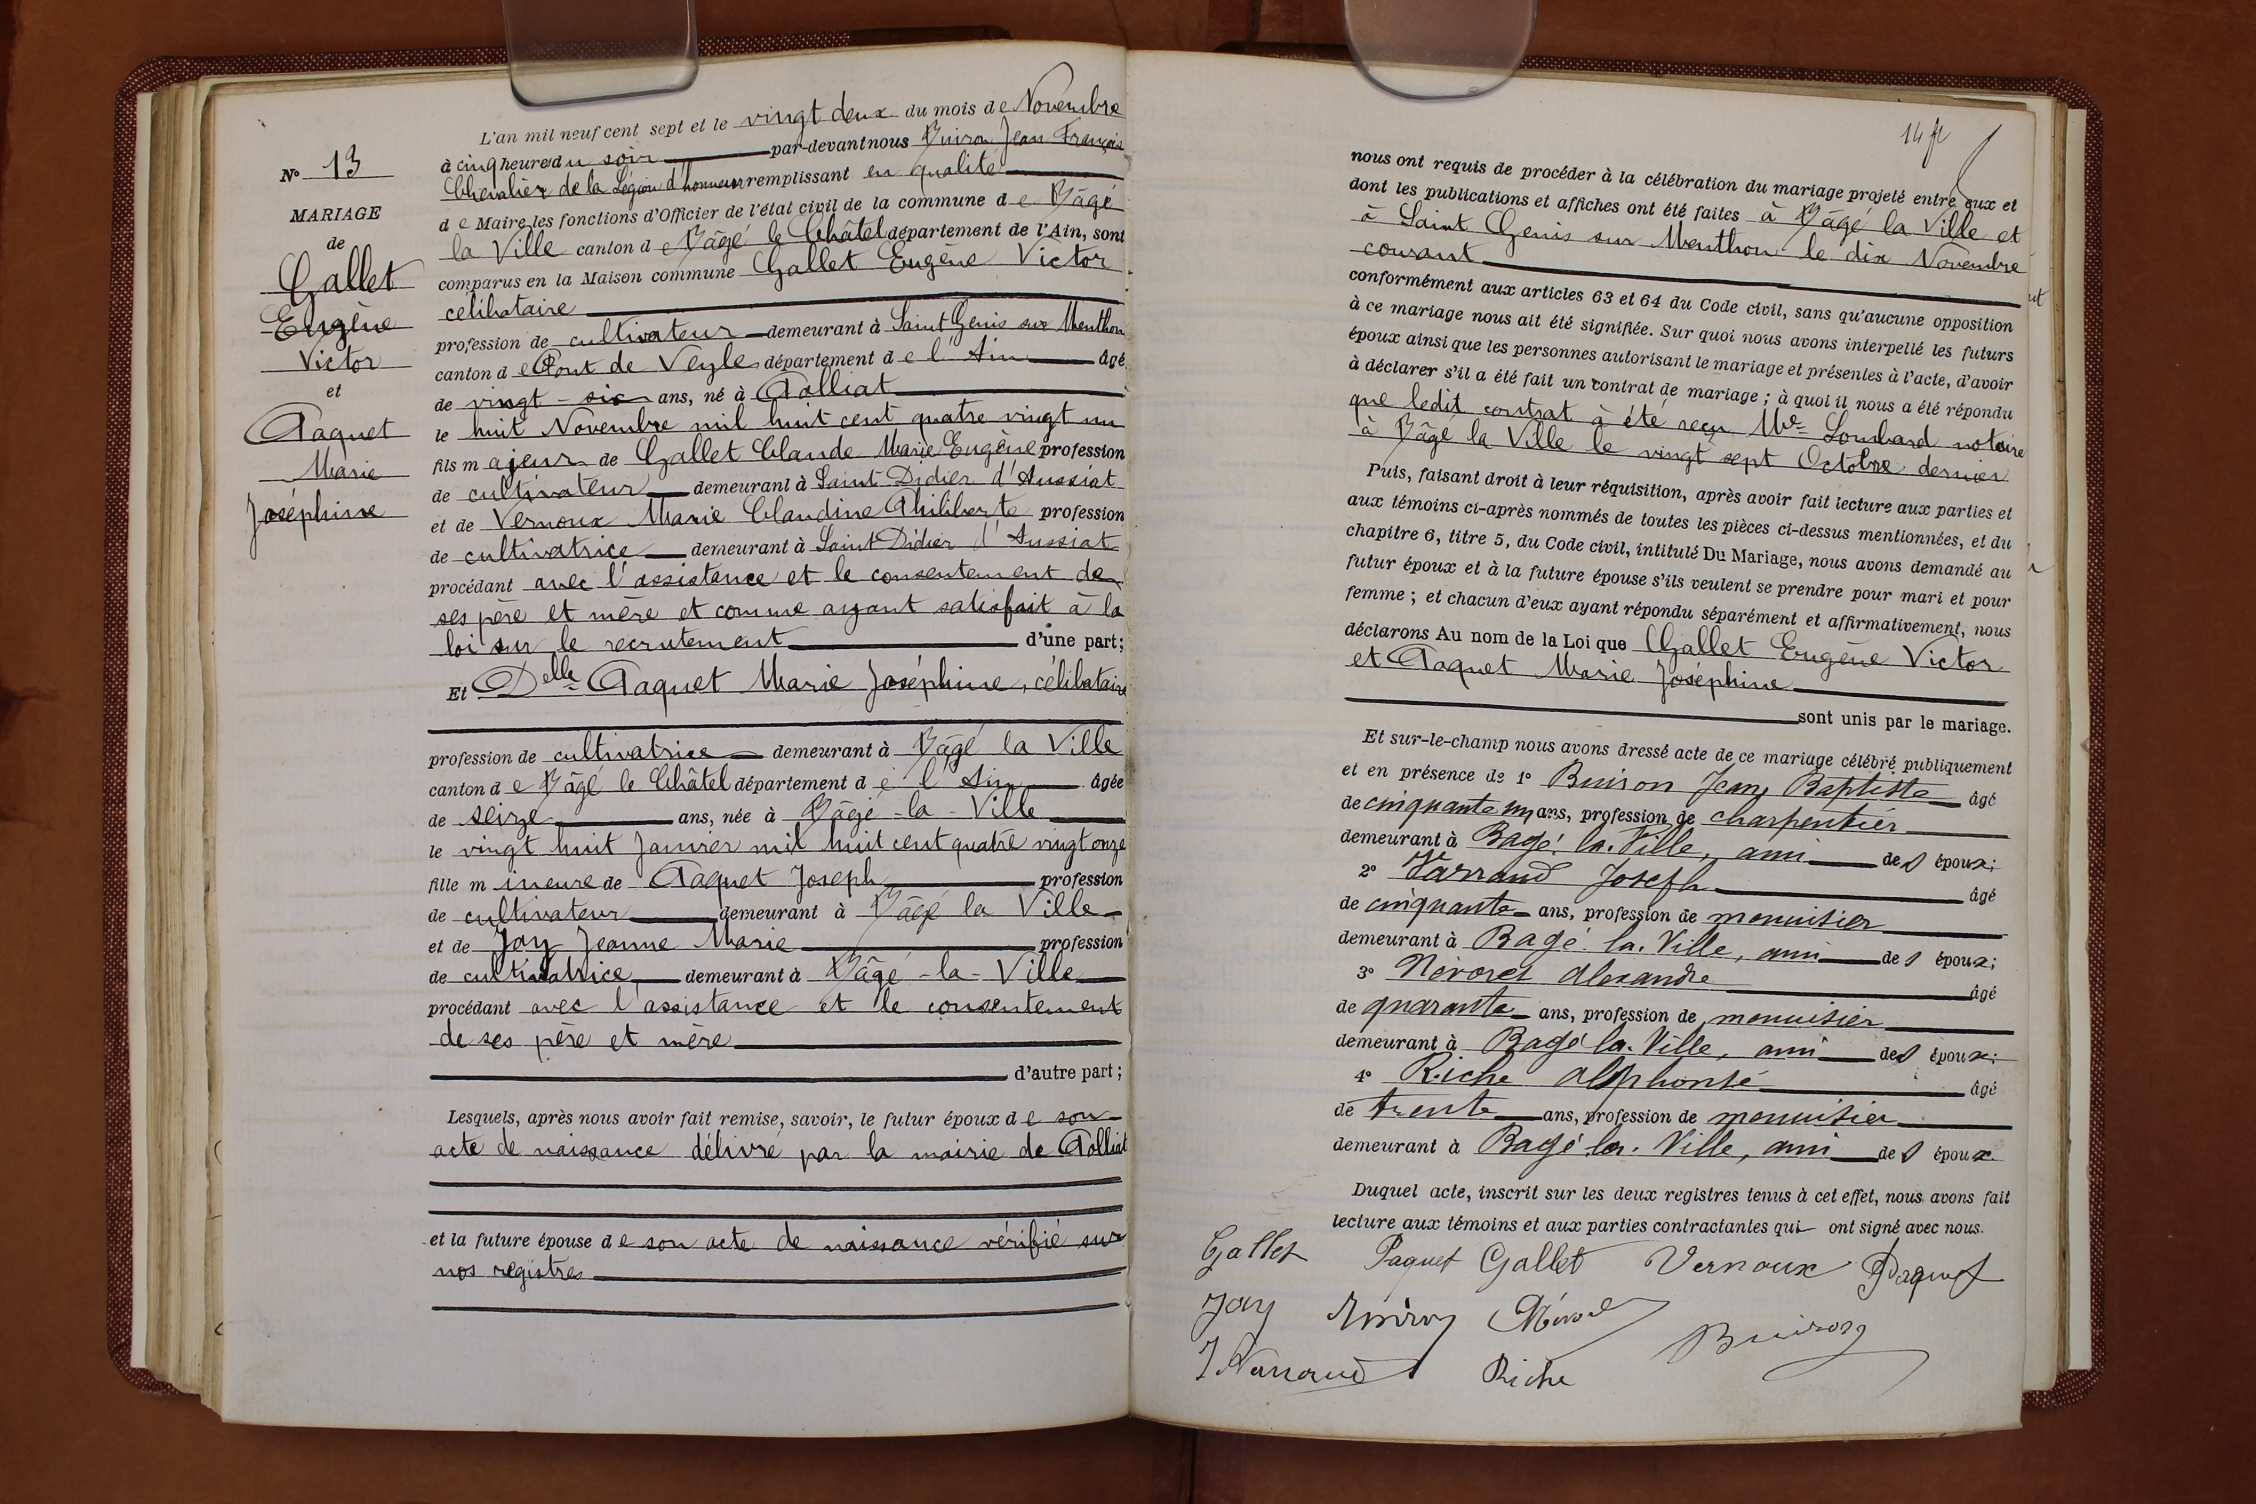 L'an mil neuf cent sept et le vingt deux du mois de Novembre
à cinq heures du soir par-devant nous Buiron Jean François
Chevalier de la Légion d'honneur remplissant en qualité
de Maire les fonctions d'Officier de l'état civil de la commune de Bâgé
la Ville canton de Bâgé le Châtel département de l'Ain, sont
comparus en la Maison commune Gallet Eugène Victor
célibataire
profession de cultivateur demeurant à Saint Genis sur Menthon
canton de Pont de Veyle département de l'Ain âgé
de vingt-six ans, né à Polliat
le huit Novembre mil huit cent quatre vingt un
fils majeur de Gallet Claude Marie Eugène profession
de cultivateur demeurant à Saint Didier d'Aussiat
et de Vernoux Marie Claudine Philiberte profession
de cultivatrice demeurant à Saint Didier d'Aussiat
procédant avec l'assistance et le consentement de
ses père et mère et comme ayant satisfait à la
loi sur le recrutement d'une part;
Et Delle Paquet Marie Joséphine, célibataire
profession de cultivatrice demeurant à Bâgé la Ville
canton de Bâgé le Châtel département de l'Ain âgée
de seize ans, née à Bâgé-la-Ville
le vingt huit Janvier mil huit cent quatre vingt onze
fille mineure de Paquet Joseph profession
de cultivateur demeurant à Bâgé la Ville
et de Jay Jeanne Marie profession
de cultivatrice demeurant à Bâgé-la-Ville
procédant avec l'assistance et le consentement
de ses père et mère
d'autre part;
Lesquels, après nous avoir fait remise, savoir, le futur époux de son
acte de naissance délivré par la mairie de Polliat
et la future épouse de son acte de naissance vérifié sur
nos registres
No 13
MARIAGE
de
Gallet
Eugène
Victor
et
Paquet
Marie
Joséphine
14 ft
nous ont requis de procéder à la célébration du mariage projeté entre eux et
dont les publications et affiches ont été faites à Bâgé la Ville et
à Saint Genis sur Menthon le dix Novembre
courant
conformément aux articles 63 et 64 du Code civil, sans qu'aucune opposition
à ce mariage nous ait été signifiée. Sur quoi nous avons interpellé les futurs
époux ainsi que les personnes autorisant le mariage et présentes à l'acte, d'avoir
à déclarer s'il a été fait un contrat de mariage; à quoi il nous a été répondu
que ledit contrat à été reçu Me Lombard notaire
à Bâgé la Ville le vingt sept Octobre dernier
Puis, faisant droit à leur réquisition, après avoir fait lecture aux parties et
aux témoins ci-après nommés de toutes les pièces ci-dessus mentionnées, et du
chapitre 6, titre 5, du Code civil, intitulé Du Mariage, nous avons demandé au
futur époux et à la future épouse s'ils veulent se prendre pour mari et pour
femme; et chacun d'eux ayant répondu séparément et affirmativement, nous
déclarons Au nom de la Loi que Gallet Eugène Victor
et Paquet Marie Joséphine
sont unis par le mariage.
Et sur-le-champ nous avons dressé acte de ce mariage célébré publiquement
et en présence de 1º Buiron Jean Baptiste âgé
de cinquante un ans, profession de charpentier
demeurant à Bagé la. Ville, ami des époux;
2º Varraud Joseph âgé
de cinquante ans, profession de menuisier
demeurant à Bagé la. Ville, ami des époux;
3º Névoret Alexandre âgé
de quarante ans, profession de menuisier
demeurant à Bagé la. Ville, ami des époux;
4º Riche Alphonse âgé
de trente ans, profession de menuisier
demeurant à Bagé la. Ville, ami des époux
Duquel acte, inscrit sur les deux registres tenus à cet effet, nous avons fait
lecture aux témoins et aux parties contractantes qui ont signé avec nous.
Gallet Paquet Gallet Vernoux Paquet
Jay Buiron Névoret Buiron
J Varraud Riche